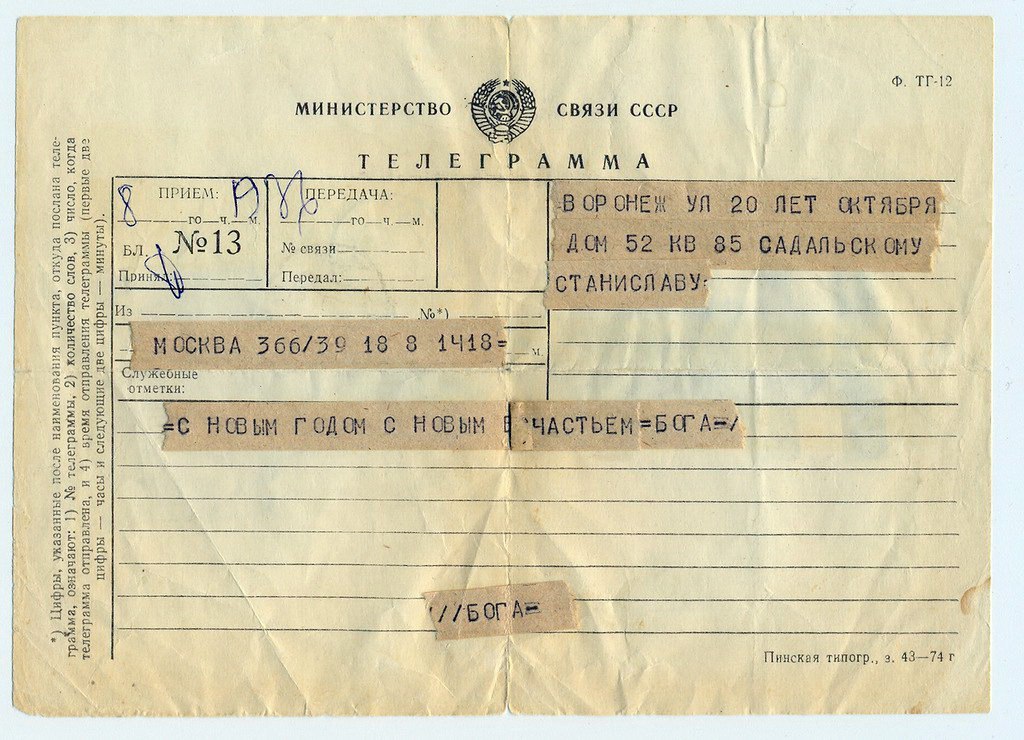 Ф. ТГ-12
МИНИСТЕРСТВО СВЯЗИ СССР
ТЕЛЕГРАММА
ПРИЕМ:
8 го ч. м.
БЛ. №13
Принял:
ПЕРЕДАЧА:
го ч. м.
№ связи
Передал:
ВОРОНЕЖ УЛ 20 ЛЕТ ОКТЯБРЯ
ДОМ 52 КВ 85 САДАЛЬСКОМУ
СТАНИСЛАВУ=
Из №*)
МОСКВА 366/39 18 8 1418=
м.
Служебные
отметки:
=С НОВЫМ ГОДОМ С НОВЫМ СЧАСТЬЕМ=БОГА=/
'//БОГА=
Пинская типогр., з. 43—74 г
*) Цифры, указанные после наименования пункта, откуда послана теле-
грамма, означают: 1) № телеграммы, 2) количество слов, 3) число, когда
телеграмма отправлена, и 4) время отправления телеграммы (первые две
цифры — часы и следующие две цифры — минуты).